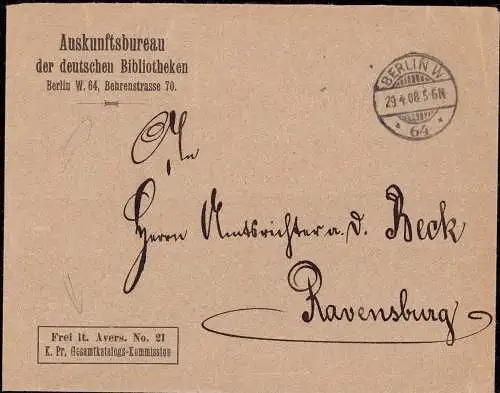 Auskunftsbureau
der deutschen Bibliotheken
Berlin W. 64, Behrenstrasse 70.
BERLIN W
29.4.08.5-6N
* 64 *
An
Herrn Amtsrichter a. d. Beck
Ravensburg
Frei lt. Avers. No. 21
K. Pr. Gesamtkatalogs-Kommission